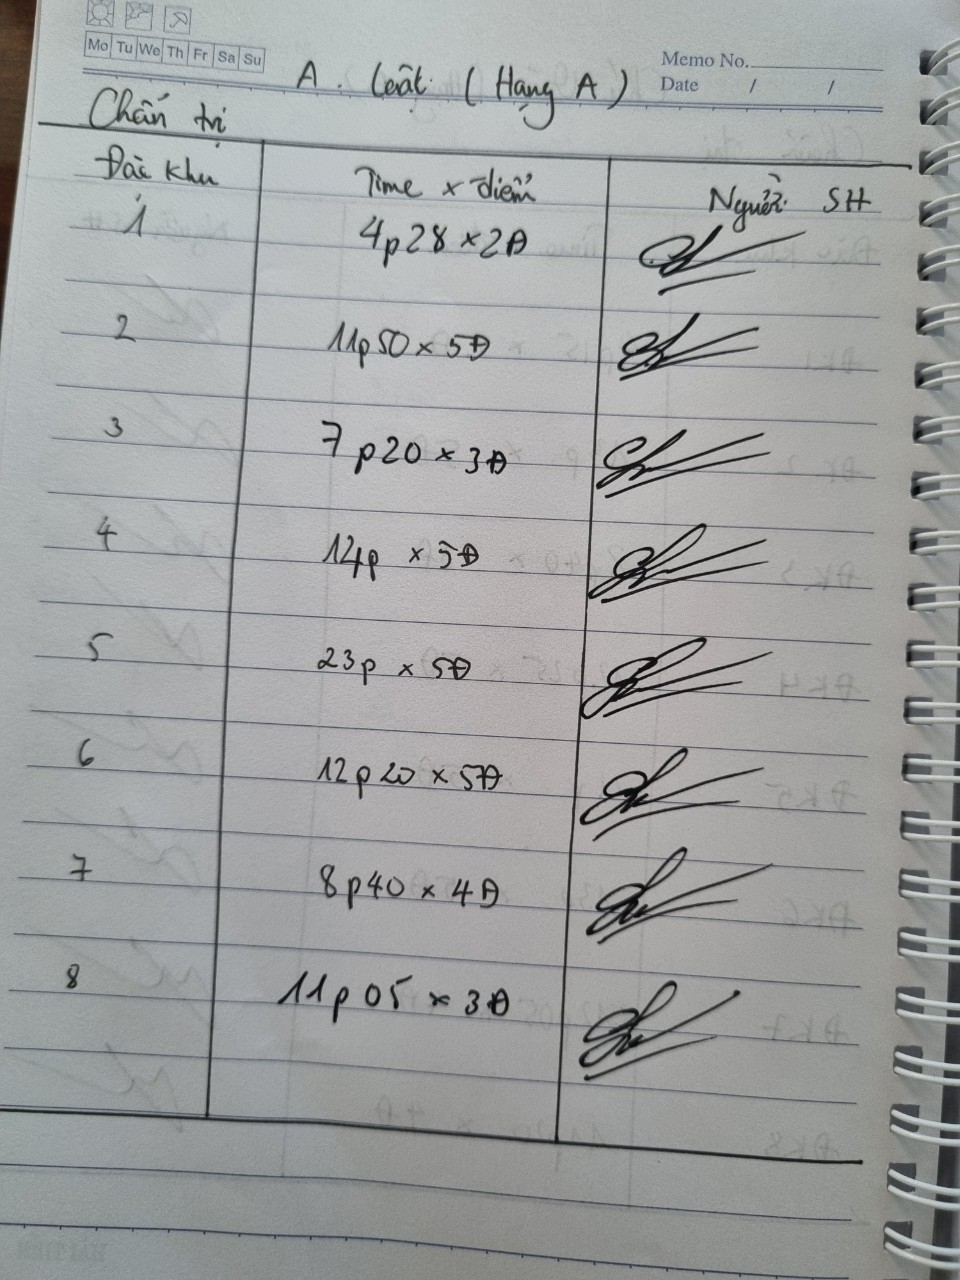 Mo Tu We Th Fr Sa Su
Memo No.
Date / /
A. Luật (Hạng A)
Chấn trị
Đặc khu Time x điểm Người SH
1 4p28 x 2Đ
2 11p50 x 5Đ
3 7p20 x 3Đ
4 12p x 5Đ
5 23p x 5Đ
6 12p20 x 5Đ
7 8p40 x 4Đ
8 11p05 x 3Đ